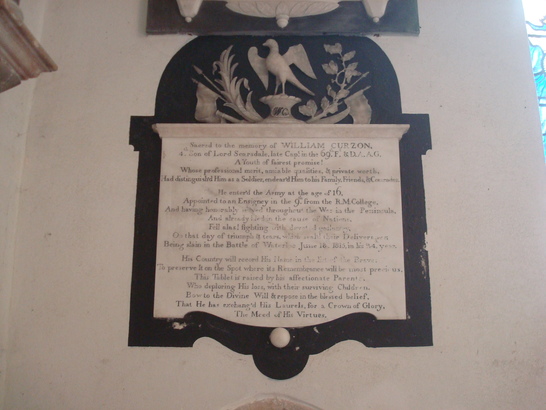 Sacred to the memory of WILLIAM CURZON,
Son of Lord Scarsdale, late Capt. in the 69th F. & D.A.A.G.
A Youth of fairest promise!
Whose professional merit, amiable qualities, & private worth,
Had distinguish'd Him as a Soldier, endear'd Him to his Family, Friends, & Comrades,
He enter'd the Army at the age of 16,
Appointed to an Ensigncy in the 9th from the R.M. College,
And having honorably served throughout the War in the Peninsula,
And already bled in the cause of Nations,
Fell alas! fighting
On that day of triumph & tears, Deliverance
Being slain in the Battle of Waterloo June 18, 1815, in his 24 year.
His Country will record His Name in the of the Brave,
To preserve it on the Spot where its Remembrance will be most precious,
This Tablet is raised by his affectionate Parents,
Who deploring His loss, with their surviving Children,
Bow to the Divine Will & repose in the blessed belief,
That He has exchang'd His Laurels, for a Crown of Glory,
The Meed of His Virtues.